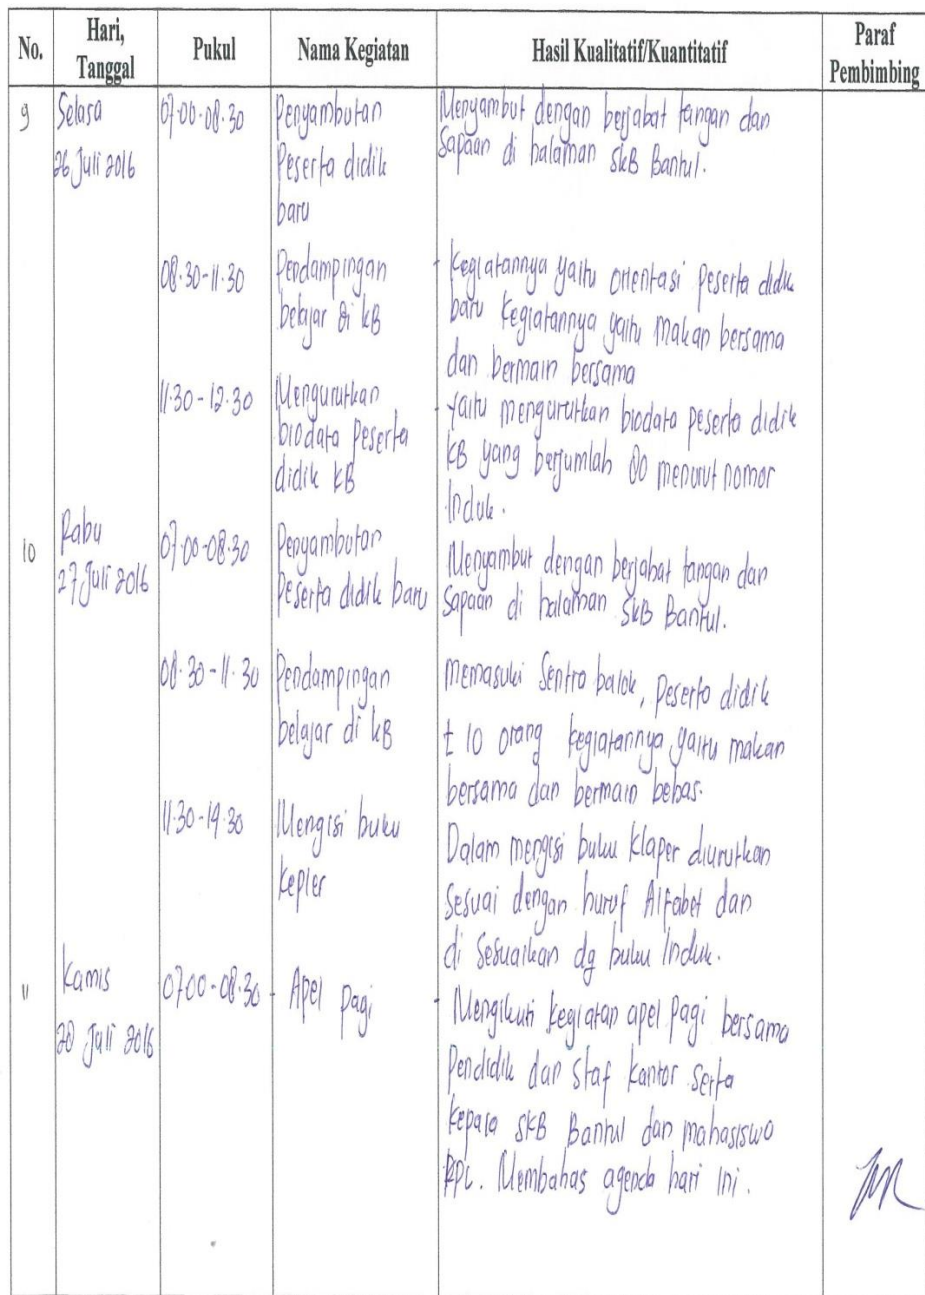 No.
Hari,
Tanggal
Pukul
Nama Kegiatan
Hasil Kualitatif/Kuantitatif
Paraf
Pembimbing
9
Selasa
26 Juli 2016
07.00-08.30
Penyambutan
Peserta didik
baru
Menyambut dengan berjabat tangan dan
Sapaan di halaman SKB Bantul.
08.30-11.30
Pendampingan
belajar di KB
- Kegiatannya yaitu orientasi peserta didik
baru kegiatannya yaitu makan bersama
dan bermain bersama
11.30-12.30
Mengurutkan
biodata peserta
didik KB
- yaitu mengurutkan biodata peserta didik
KB yang berjumlah 80 menurut nomor
Induk.
10
Rabu
27 Juli 2016
07.00-08.30
Penyambutan
Peserta didik baru
Menyambut dengan berjabat tangan dan
Sapaan di halaman SKB Bantul.
08.30-11.30
Pendampingan
belajar di KB
memasuki Sentra balok, peserta didik
± 10 orang kegiatannya yaitu makan
bersama dan bermain bebas.
11.30-14.30
Mengisi buku
kepler
Dalam mengisi buku klaper diurutkan
Sesuai dengan huruf Alfabet dan
di Sesuaikan dg buku Induk.
11
Kamis
28 Juli 2016
07.00-08.30
- Apel pagi
- Mengikuti kegiatan apel pagi bersama
Pendidik dan staf kantor serta
kepala SKB Bantul dan mahasiswa
PPL. Membahas agenda hari ini.